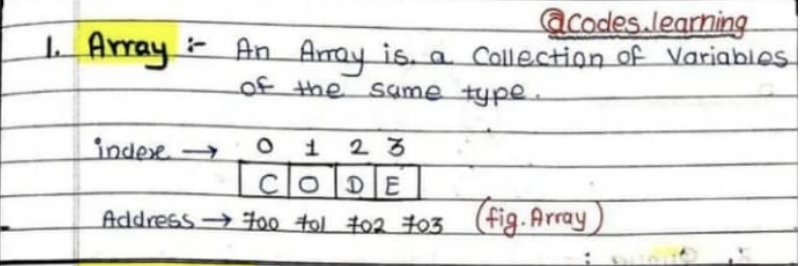 @codes.learning
1. Array :- An Array is. a Collection of Variables
of the same type.
index → 0 1 2 3
C O D E
Address → 700 701 702 703 (fig. Array)